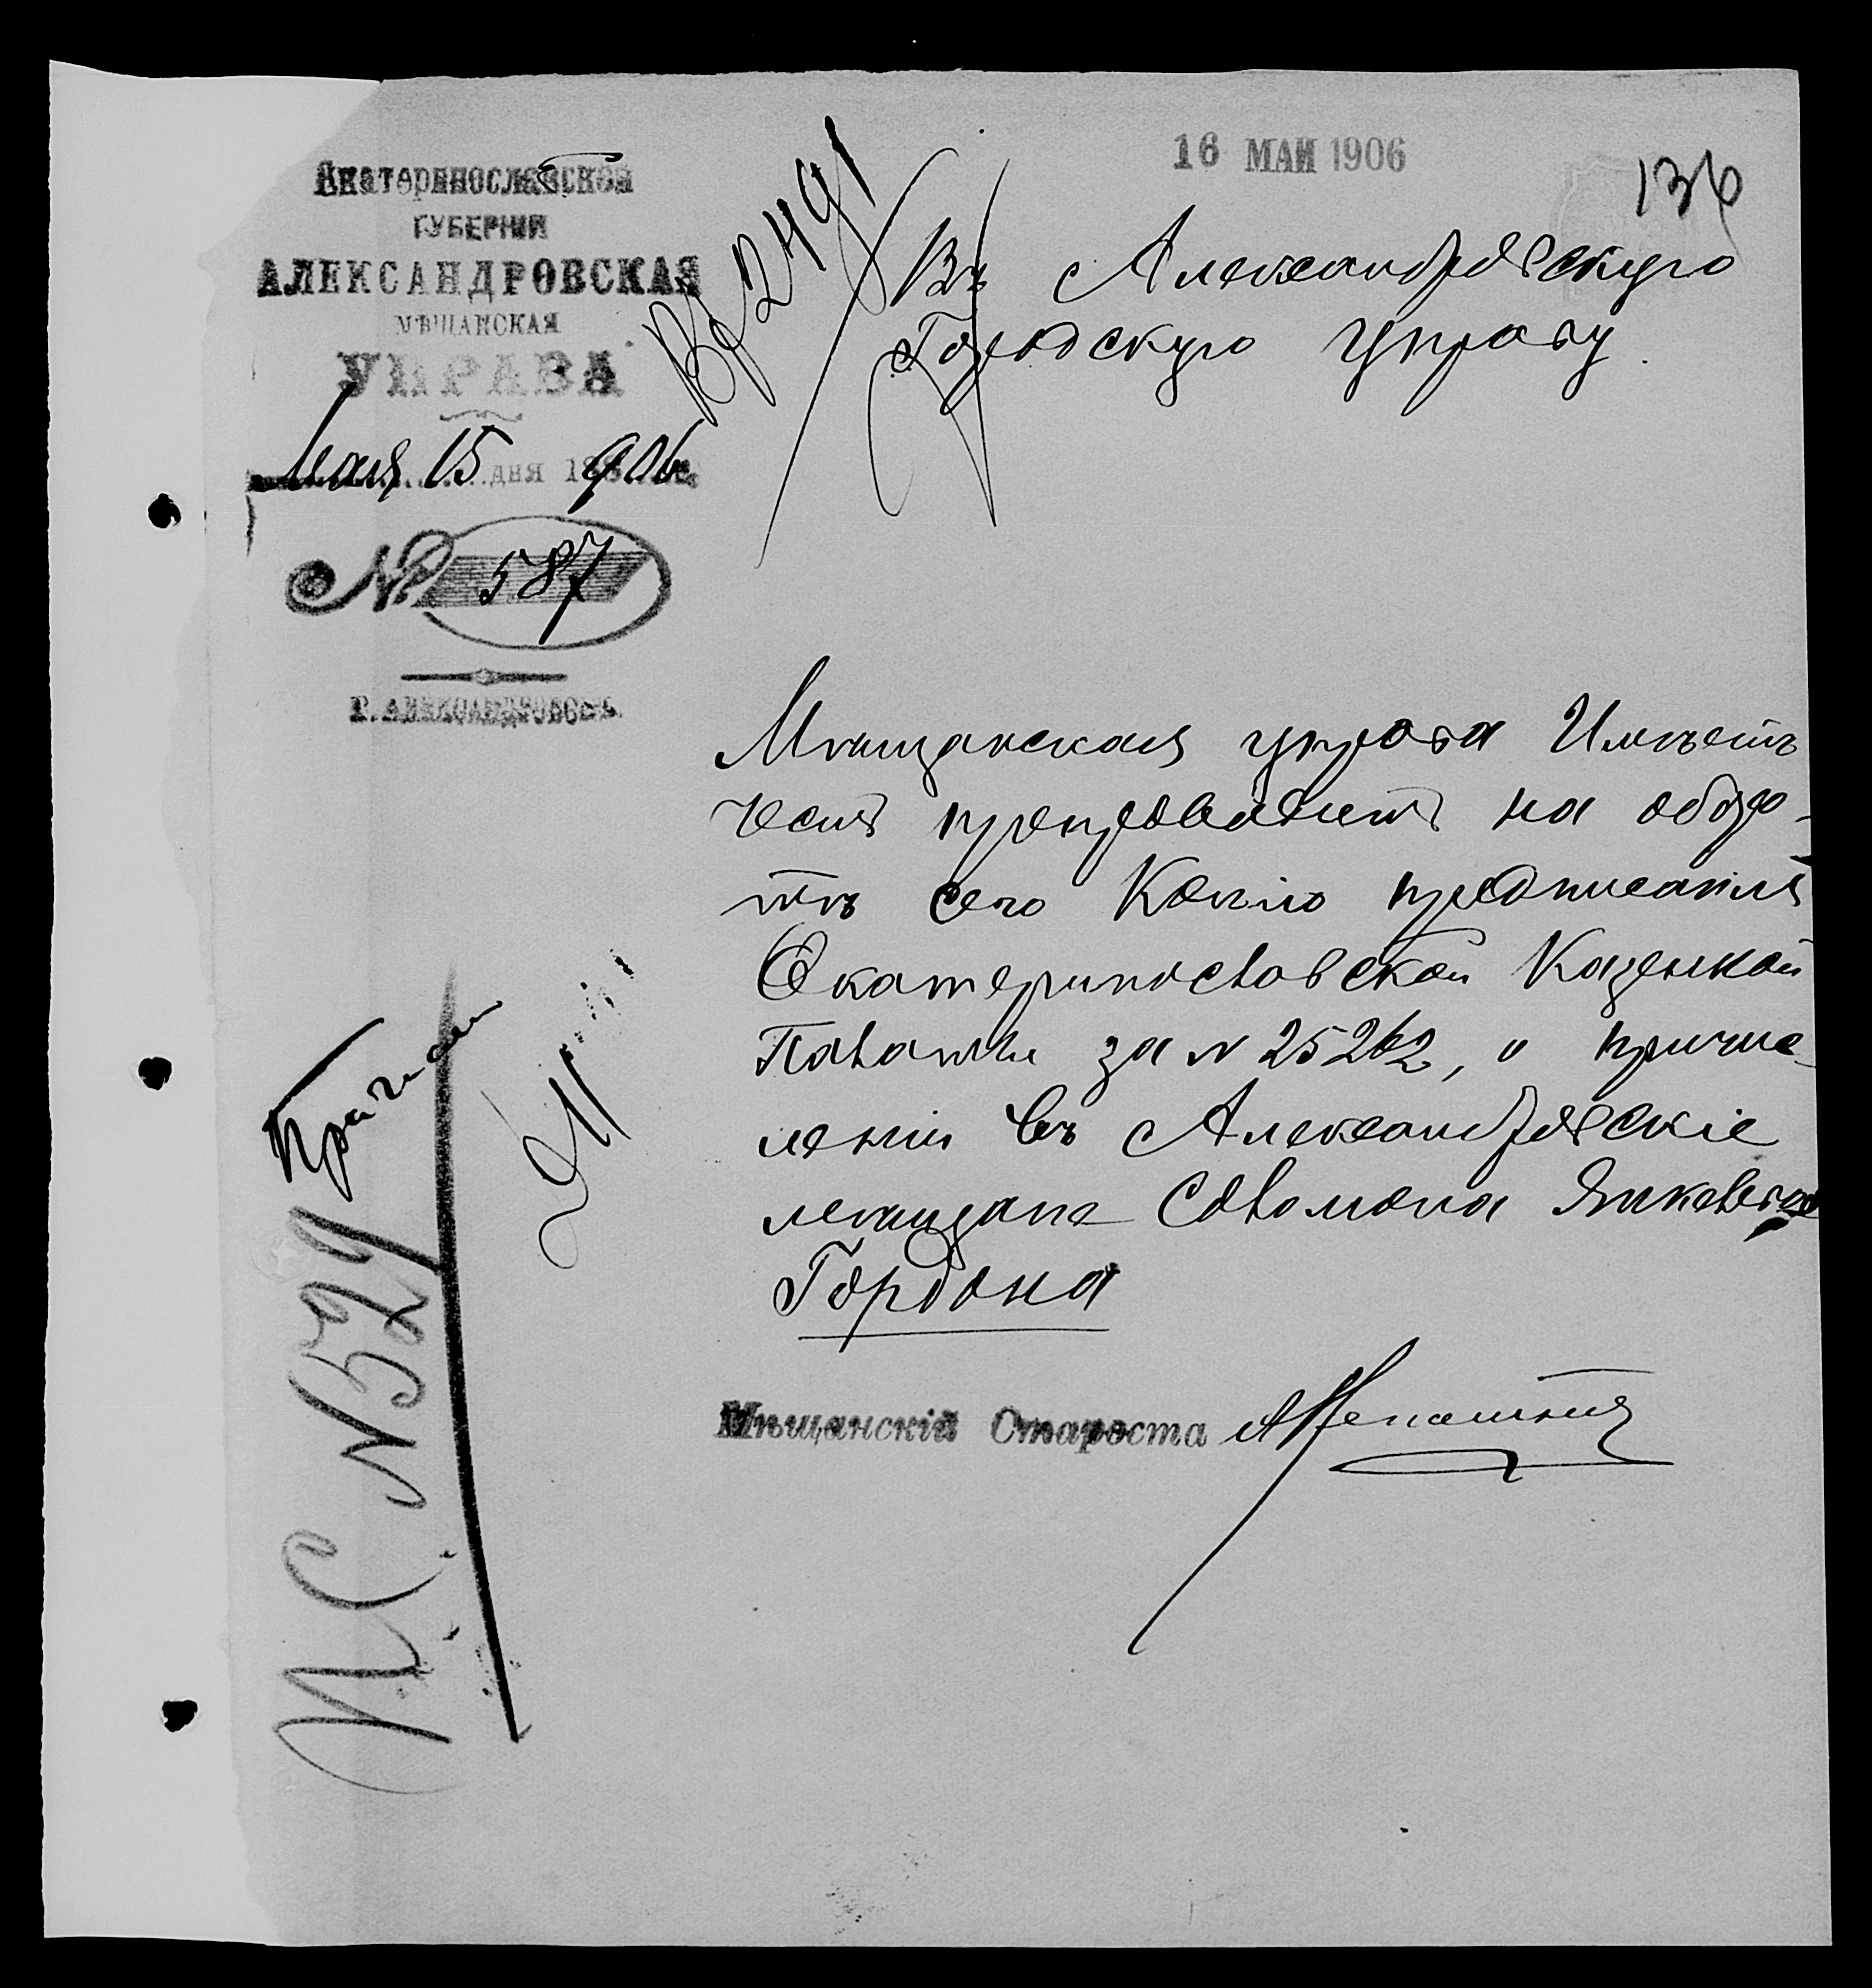 16 МАЙ 1906
136
Екатеринославской
ГУБЕРНІИ
АЛЕКСАНДРОВСКАЯ
МѢЩАНСКАЯ
УПРАВА
Мая 15 дня 1906
№ 587
Г. АЛЕКСАНДРОВСКЪ.
Вх 2491
Въ Александровскую
Городскую управу.
Мѣщанская управа Имѣетъ
честь препроводить на оборо-
тѣ сего Копію предписанія
Екатеринославской Казенной
Палаты за № 25262, о причис-
леніи въ Александровскіе
мѣщане Соломона Янкелева
Гордона
Мѣщанскій Староста
М. С. № 529